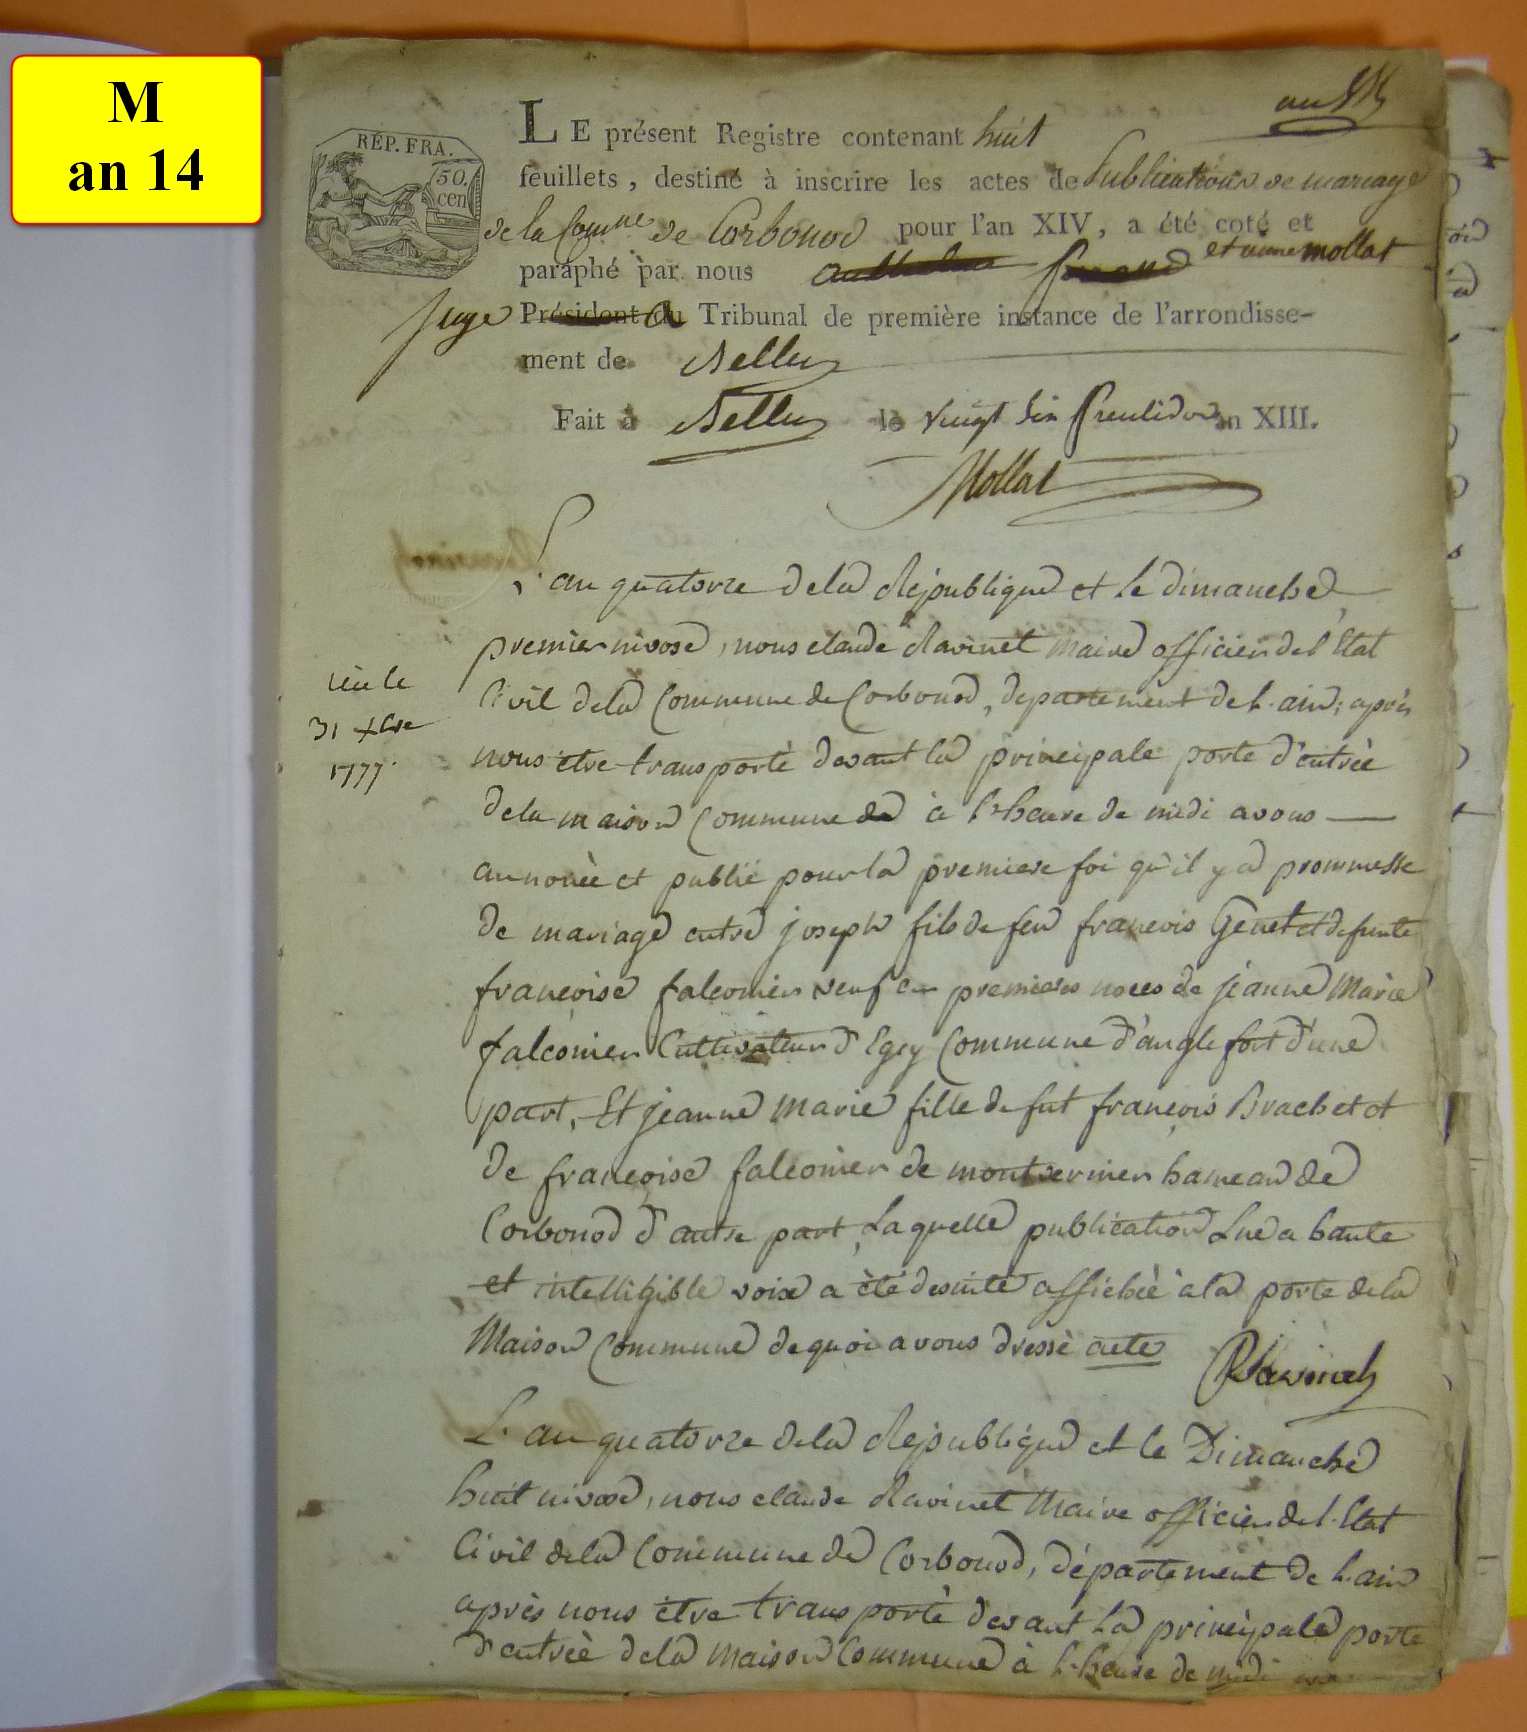 M
an 14
an 14
RÉP. FRA.
50.
cen
LE présent Registre contenant huit
feuillets, destiné à inscrire les actes de Publications de mariage
de la Comune de Corbonod pour l'an XIV, a été coté et
paraphé par nous etienne mollat
juge Président du Tribunal de première instance de l'arrondisse-
ment de Belley
Fait à Belley le vingt six fructidor an XIII.
Mollat
L'an quatorze de la République et le dimanche
premier nivose, nous claude Ravinet maire officier de l'Etat
Civil de la Commune de Corbonod, departement de l'ain; après
nous etre transporté devant la principale porte d'entrée
de la maison Commune à l'heure de midi avons
annoncé et publié pour la premiere foi qu'il y a prommesse
de mariage entre joseph fils de feu francois Genet et defunte
francoise falconier veuf en premieres noces de jeanne Marie
falconier Cultivateur d'Egey Commune d'anglefort d'une
part, Et jeanne Marie fille de fut francois Brachet et
de francoise falconier de montvernier hameau de
Corbonod d'autre part, Laquelle publication Lue a haute
et intelligible voix a été desuite affichée a la porte de la
Maison Commune de quoi avons dressé acte
Ravinet
vëu le
31 xbre
1777.
L'an quatorze de la République et le Dimanche
huit nivose, nous claude Ravinet Maire officier de l'Etat
Civil de la Commune de Corbonod, département de l'ain
après nous être transporté devant la principale porte
d'entrée de la Maison Commune à l'heure de midi